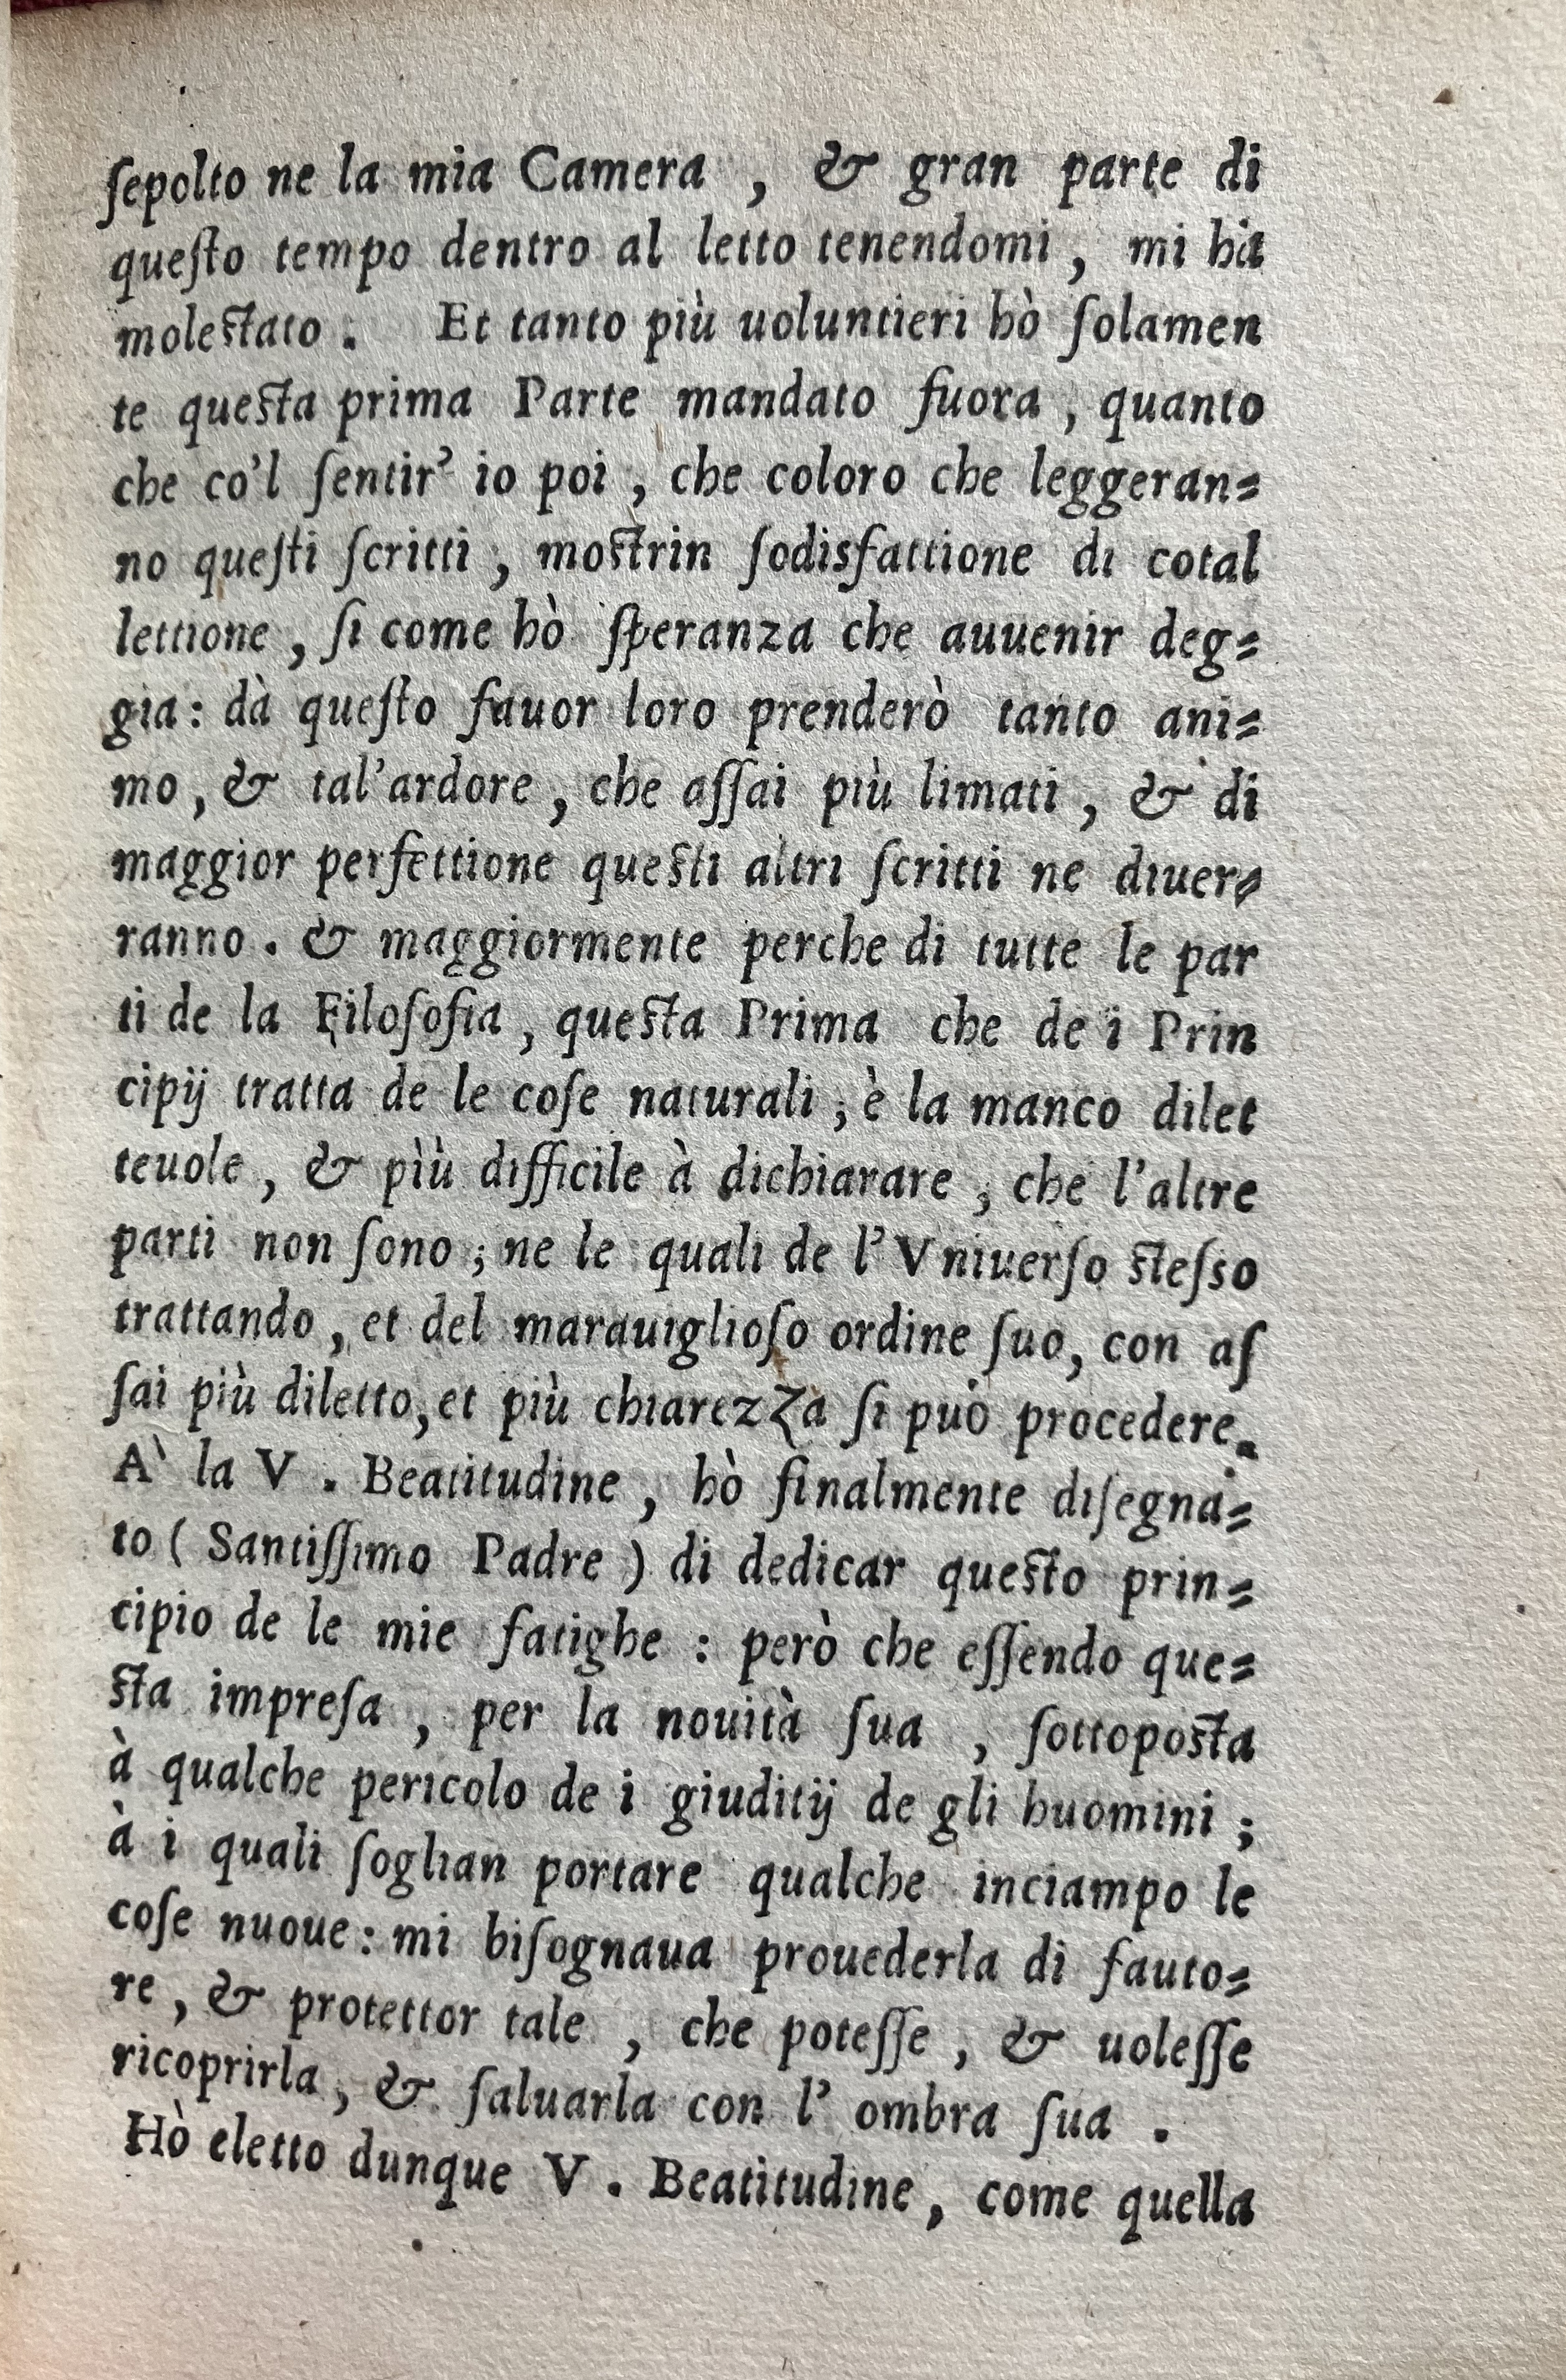 ſepolto ne la mia Camera , & gran parte di
queſto tempo dentro al letto tenendomi , mi hà
moleſtato . Et tanto più uoluntieri hò ſolamen
te queſta prima Parte mandato fuora , quanto
che co'l ſentir' io poi , che coloro che leggeran=
no queſti ſcritti , moſtrin ſodisfattione di cotal
lettione , ſi come hò ſperanza che auuenir deg=
gia : dà queſto fauor loro prenderò tanto ani=
mo , & tal'ardore , che aſſai più limati , & di
maggior perfettione queſti altri ſcritti ne diuer=
ranno . & maggiormente perche di tutte le par
ti de la Filoſofia , queſta Prima che de i Prin
cipij tratta de le coſe naturali ; è la manco dilet
teuole , & pìù difficile à dichiarare , che l'altre
parti non ſono ; ne le quali de l'Vniuerſo ſteſso
trattando , et del marauiglioſo ordine ſuo, con aſ
ſai più diletto, et più chiarezza ſi può procedere.
A` la V . Beatitudine , hò finalmente diſegna=
to ( Santiſſimo Padre ) di dedicar queſto prin=
cipio de le mie fatighe : però che eſſendo que=
ſta impreſa , per la nouità ſua , ſottopoſta
à qualche pericolo de i giuditij de gli huomini ;
à i quali ſoglian portare qualche inciampo le
coſe nuoue : mi biſognaua prouederla di fauto=
re , & protettor tale , che poteſſe , & uoleſſe
ricoprirla , & ſaluarla con l' ombra ſua .
Hò eletto dunque V . Beatitudine , come quella